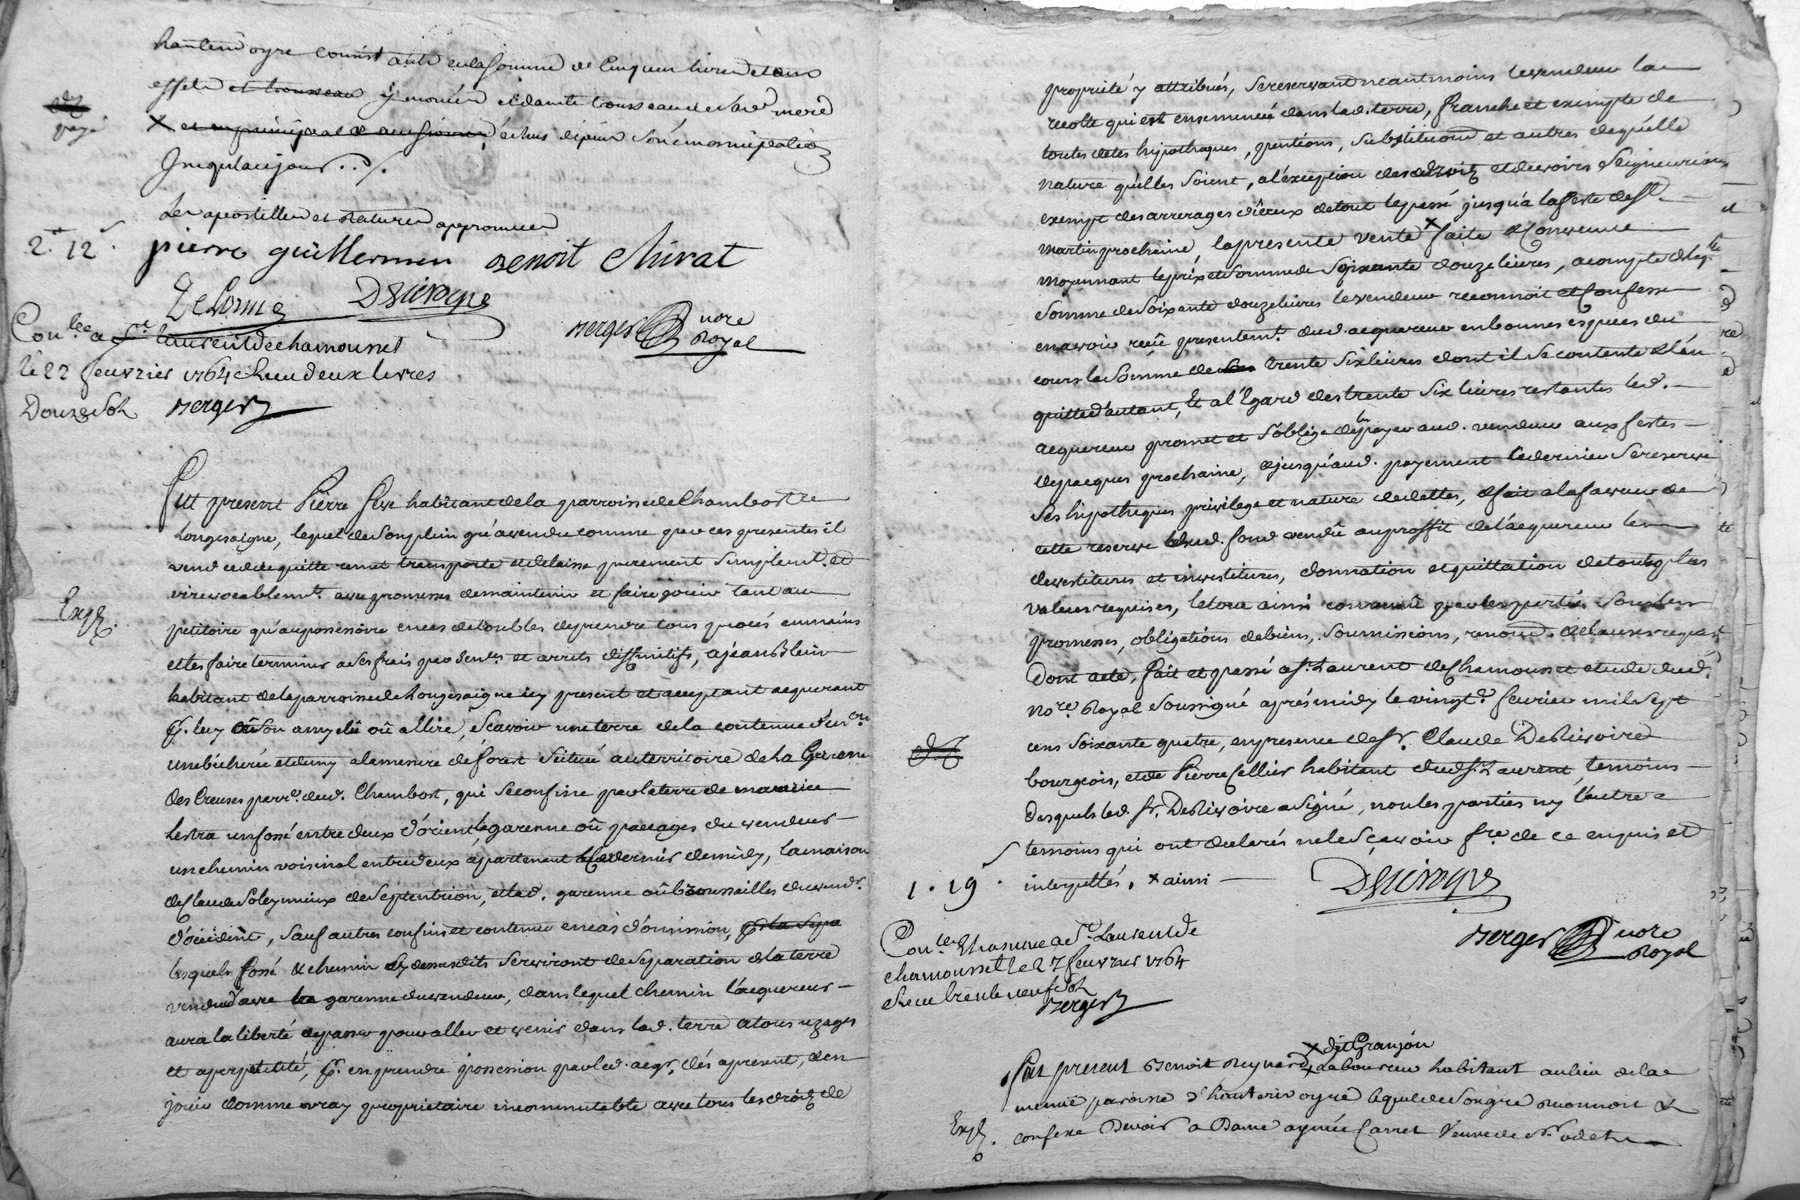 effets et trousseau
échus depuis son émancipation
Jusqu'a ce jour ../.
Les apostilles et ratures approuvees
2.ᵗ 12ˢ. pierre guillermin Benoit Chirat
Delorme Desrivoire
Berger no.re Royal
Con.lee a St. Laurent de chamousset
le 22 feuvrier 1764 Recu deux livres
Douze Sols Berger
Fut present Pierre habitant de la parroisse de Chambost &
Longesaigne, lequel de son plein gré a vendu comme par ces presentes il
vend cede quitte remet transporte et delaisse purement simplemt. et
irrevocablemt. avec promesses de maintenir et faire jouir tant au
petitoire qu'au possessoire en cas de troubles de prendre tous procés en mains
et les faire terminer a ses frais par sentces. et arrets diffinitifs, a jean Blein
habitant de la parroisse de Longesaigne icy present et acceptant acquerant
Exp.
pr. luy ou son amy elû où a Elire, Scavoir une terre de la contenue d'environ
une bicherée et demy a la mesure de forest située au territoire de La Garenne
des Creuses parr. dud. Chambost, qui se confine par la terre de
Lestra un fossé entre deux d'orient, la garenne où pacages du vendeur
un chemin voisinal entre deux appartenant aud. dernier de midy, la maison
de Claude Soleymieux de Septentrion, et lad. garenne où broussailles du vendr.
d'occident, sauf autres confins et contenue en cas d'omission,
lesquels fossé & chemin susdits serviront de separation de la terre
vendue d'avec la garenne du vendeur, dans lequel chemin l'acquereur
aura la liberté de passer pour aller et venir dans lad. terre a tous uzages
et a perpetuité, pr. en prendre possession par led. acqr. dés apresent, & en
jouir comme vray proprietaire incommutable avec tous les droits de
propriété y attribués, se reservant neantmoins le vendeur la
recolte qui est ensemencée dans lad. terre, franche et exempte de
toutes dettes hypotheques, pentions, substitutions et autres de quelle
nature qu'elles soient, a l'exception des droits et devoirs Seigneuriaux
exempt des arrerages d'iceux de tout le passé jusqu'a la feste de St.
martin prochaine, la presente vente x faite & Convenue
moyennant le prix et somme de soixante douze livres, a compte de lad.
somme de soixante douze livres le vendeur reconnoit et Confesse
en avoir reçu presentemt. dud. acquereur en bonnes especes du
cours la somme de trente six livres dont il se contente & l'en
quitte d'autant, Et a l'Egard des trente six livres restants led.
acquereur promet et s'oblige de les payer aud. vendeur aux festes
de pacques prochaine, & jusqu'aud. payement ce dernier se reserve
ses hypotheques privilege et nature de dettes, & fait a la faveur de
cette reserve dud. fond vendû au proffit de l'acquereur les
devestitures et investitures, donnation et quittation de toutes plus
values requises, le tout ainsi convenû par les parties sous leurs
promesses, obligations de biens, soumissions, renond. & clauses requises
Dont acte, fait et passé a St. Laurent de Chamousset etude dud.
no.re Royal soussigné aprés midy le vingt feuvrier mil Sept
cens Soixante quatre, en presence de Sr. Claude Desrivoire
bourgeois, et de Pierre Cellier habitant dud. St. Laurent, temoins
desquels led. Sr. Desrivoire a signé, non les parties ny l'autre
temoins qui ont declarés ne le Sçavoir f.re de ce enquis et
interpellés. x ainsi
1. 19ˢ.
Desrivoire
Berger no.re Royal
Con.lee Et Insinue a St. Laurent de
chamousset le 27 feuvrier 1764
Recu trente neuf sols
Berger
x dit Granjon
Fut present Benoit Reynard x Laboureur habitant au lieu de la
menüe paroisse d'hauterivoyre lequel de son gré reconnoit &
Exp.
confesse Devoir a Dame agnée Carret Veuve de Sr.